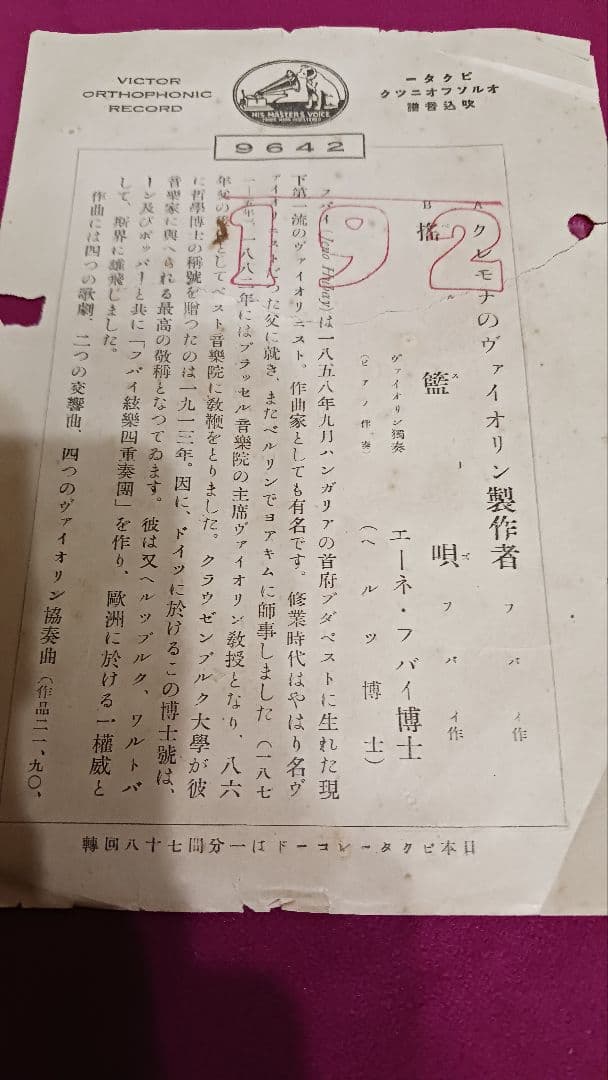 VICTOR
ORTHOPHONIC
RECORD
HIS MASTER'S VOICE
ビクター
オルソフオニツク
吹込音譜
9642
192
A クレモナのヴァイオリン製作者 フバイ作
B 搖籃唄 フバイ作
ヴァイオリン獨奏 エーネ・フバイ博士
(ピアノ伴奏) (ヘルツ博士)
フバイ(Jeno Hubay)は一八五八年九月ハンガリアの首府ブダペストに生れた現
下第一流のヴァイオリニスト。作曲家としても有名です。修業時代はやはり名ヴ
ァイオリニストだつた父に就き、またベルリンでヨアキムに師事しました(一八七
一―五年)。一八八二年にはブラッセル音樂院の主席ヴァイオリン敎授となり、八六
年父の後としてペスト音樂院に敎鞭をとりました。クラウゼンブルク大學が彼
に哲學博士の稱號を贈つたのは一九一三年。因に、ドイツに於けるこの博士號は、
音樂家に與へられる最高の敬稱となつてゐます。彼は又ヘルツブルク、ワルトバ
ーン及びポッパーと共に「フバイ絃樂四重奏團」を作り、歐洲に於ける一權威と
して、斯界に雄飛しました。
作曲には四つの歌劇、二つの交響曲、四つのヴァイオリン協奏曲(作品二一、九〇、
日本ビクターレコードは一分間七十八回轉